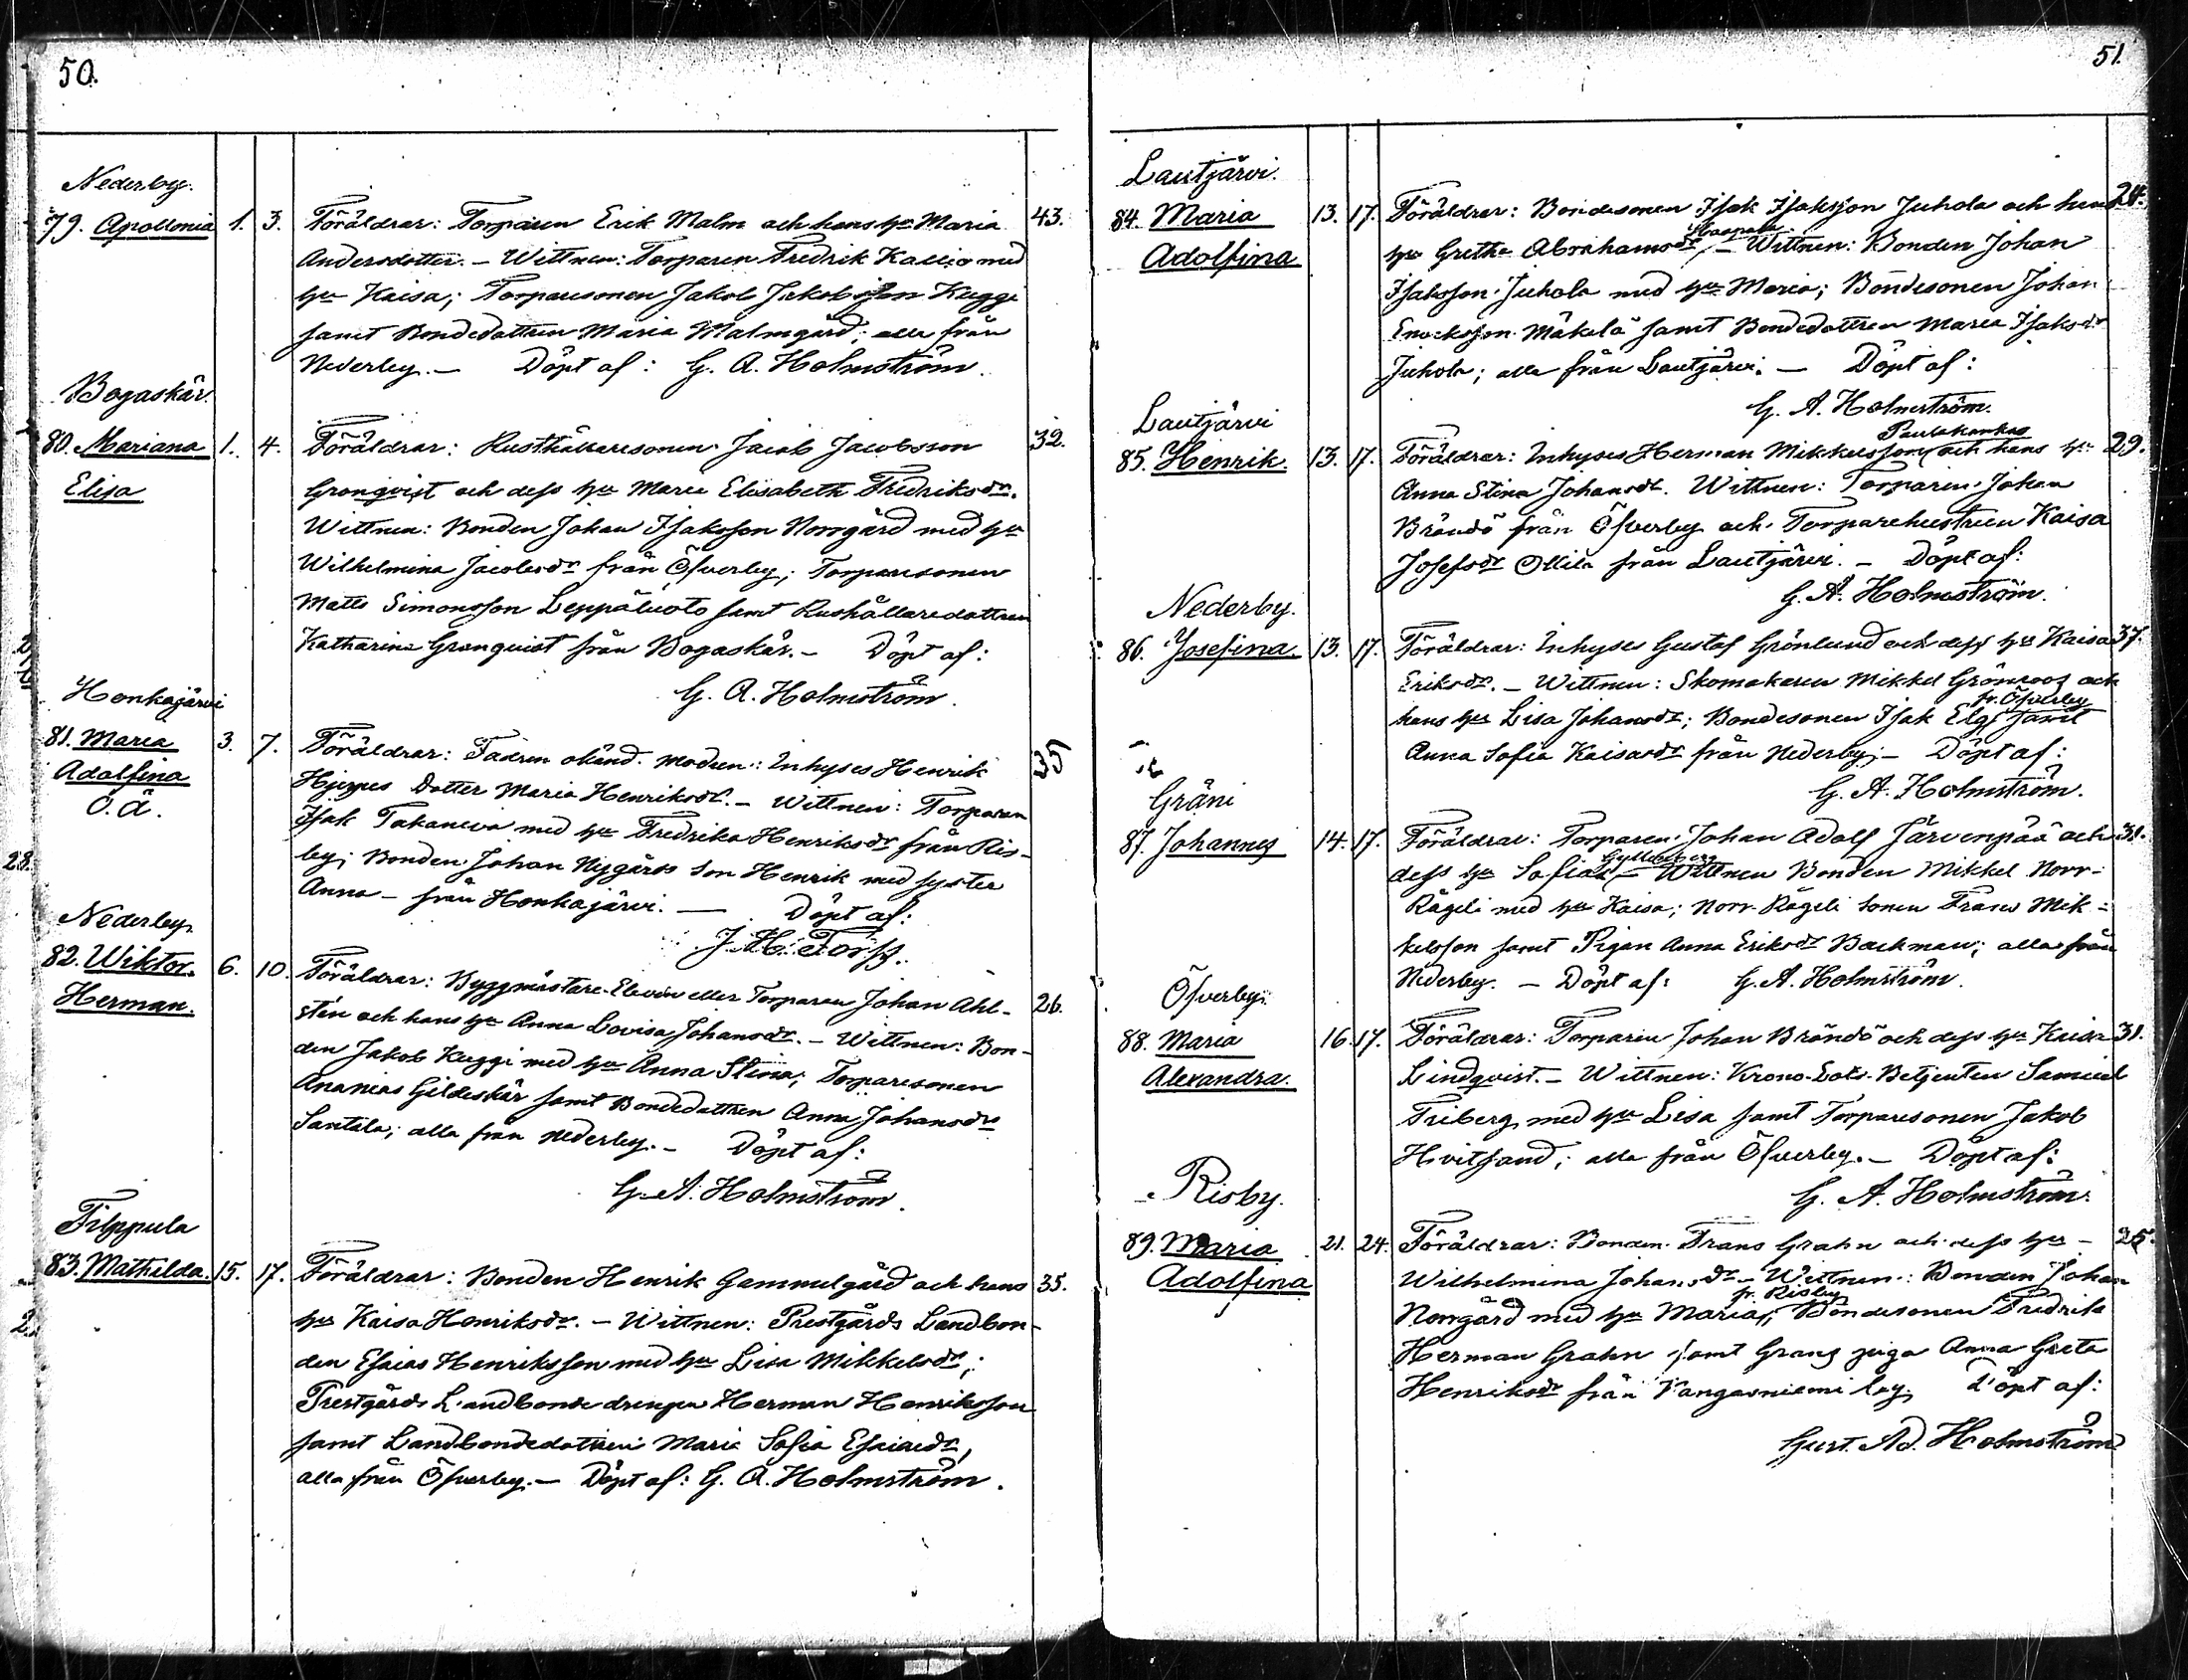 50.
Nederby.
79. Apollonia 1. 3. Föräldrar: Torparen Erik Malm och hans hu Maria 43.
Andersdotter. – Wittnen: Torparen Fredrik Kallio med
hu Kaisa; Torparesonen Jakob Jakobsson Kuggi
samt Bondedottren Maria Malmgård; alla från
Nederby. — Döpt af: G. A. Holmström.
Bogaskär.
80. Mariana 1. 4. Föräldrar: Rusthållaresonen Jacob Jacobsson 32.
Elisa
Gronqvist och dess hu Maria Elisabeth Fredriksdr.
Wittnen: Bonden Johan Isaksson Norrgård med hu
Wilhelmina Jacobsdr från Öfverby; Torparesonen
Matts Simonsson Leppäluoto samt Rushållaredottren
Katharina Granquist från Bogaskär. – Döpt af:
G. A. Holmström.
Honkajärvi
81. Maria 3. 7. Föräldrar: Fadren okänd. Modren: Inhyses Henrik 35
Adolfina
O. ä.
Hjippes Dotter Maria Henriksdr. – Wittnen: Torparen
Isak Takaneva med hu Fredrika Henriksdr från Ris-
by; Bonden Johan Nygårds son Henrik med syster
Anna – från Honkajärvi. — Döpt af:
J. H. Torss.
Nederby.
82. Wiktor. 6. 10. Föräldrar: Byggmästare-Eleven eller Torparen Johan Ahl- 26.
Herman.
stén och hans hu Anna Lovisa Johansdr. – Wittnen: Bon-
den Jakob Kuggi med hu Anna Stina; Torparesonen
Ananias Gildeskär samt Bondedottren Anna Johansdr
Santala; alla från Nederby. – Döpt af:
G. A. Holmström.
Filppula
83. Mathilda. 15. 17. Föräldrar: Bonden Henrik Gammelgård och hans 35.
hu Kaisa Henriksdr. – Wittnen: Prestgårds Landbon-
den Esaias Henriksson med hu Lisa Mikkelsdr;
Prestgårds Landbonde drengen Herman Henriksson
samt Landbondedottren Maria Sofia Esaiasdr,
alla från Öfverby. – Döpt af: G. A. Holmström.
51.
Lautjärvi.
84. Maria 13. 17. Föräldrar: Bondesonen Isak Isaksson Juhola och hans 24.
Adolfina
hu Gretha Abrahamsdr – Wittnen: Bonden Johan
Isaksson Juhola med hu Maria; Bondesonen Johan
Enocksson Mäkelä samt Bondedottren Maria Isaksdr
Juhola; alla från Lautjärvi. — Döpt af:
G. A. Holmström.
Lautjärvi
85. Henrik. 13. 17. Föräldrar: Inhyses Herman Mikkelsson och hans hu 29.
Anna Stina Johansdr. Wittnen: Torparen Johan
Brändö från Öfverby och Torparehustrun Kaisa
Josefsdr Ollila från Lautjärvi. – Döpt af:
G. A. Holmström.
Nederby.
86. Josefina. 13. 17. Föräldrar: Inhyses Gustaf Grönlund och dess hu Kaisa 37.
Eriksdr. – Wittnen: Skomakaren Mikkel Grönroos och
fr. Öfverby
hans hu Lisa Johansdr; Bondesonen Isak Elg samt
Anna Sofia Kaisasdr från Nederby; – Döpt af:
G. A. Holmström.
Gräni
87. Johannes 14. 17. Föräldrar: Torparen Johan Adolf Järvenpää och 31.
Gyllenberg
dess hu Sofia – Wittnen Bonden Mikkel Norr-
Rågeli med hu Kaisa; Norr-Rågeli sonen Frans Mik-
kelsson samt Pigan Anna Eriksdr Backman; alla från
Nederby. – Döpt af: G. A. Holmström.
Öfverby.
88. Maria 16. 17. Föräldrar: Torparen Johan Brändö och dess hu Kaisa 31.
Alexandra.
Lindqvist. – Wittnen: Krono-Lots-Betjenten Samuel
Friberg med hu Lisa samt Torparesonen Jakob
Hvitsand; alla från Öfverby. – Döpt af:
G. A. Holmström.
Risby.
89. Maria 21. 24. Föräldrar: Bonden Frans Grahn och dess hu – 25.
Adolfina
Wilhelmina Johansdr – Wittnen: Bonden Johan
fr. Risby
Norrgård med hu Maria; Bondesonen Fredrik
Herman Grahn samt Grans piga Anna Greta
Henriksdr från Kangasniemi by. Döpt af:
Gust. Ad. Holmström